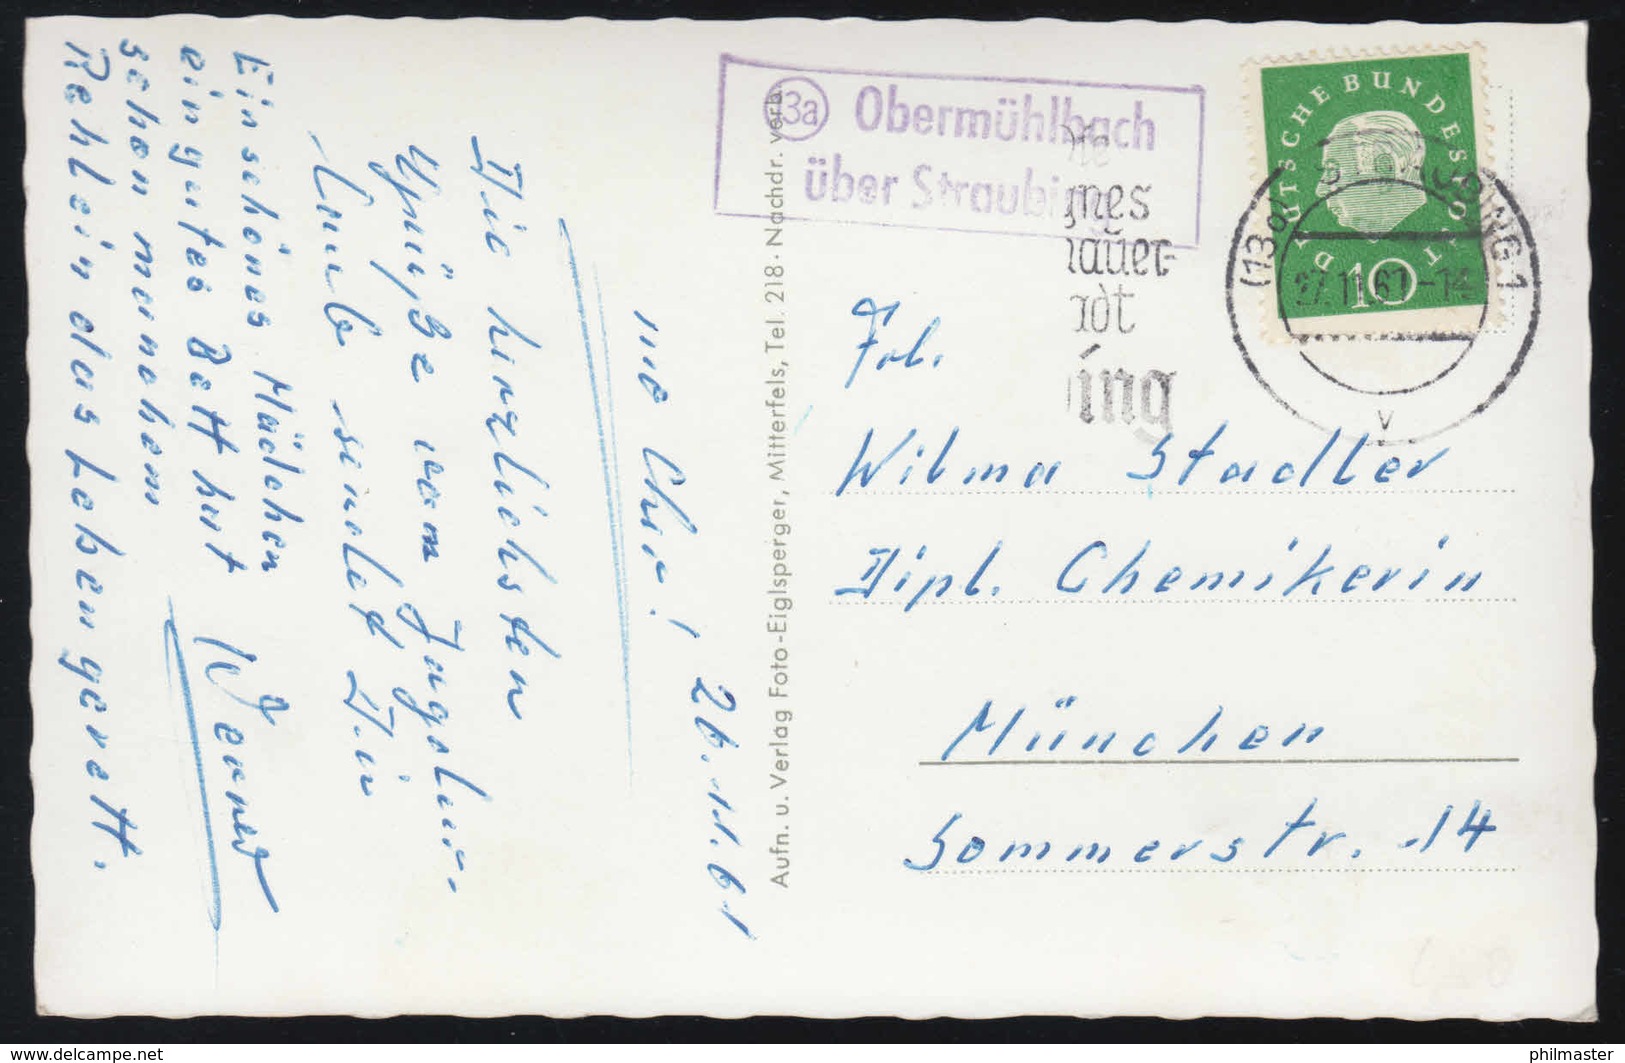 13a Obermühlbach
über Straubing
DEUTSCHE BUNDESPOST
10
(13a) STRAUBING 1
27.11.61-14
V
gnes
ing
Frl.
Wilma Stadler
Dipl. Chemikerin
München
Sommerstr. 14
Aufn. u. Verlag Foto-Eiglsperger, Mitterfels, Tel. 218 · Nachdr. verb.
26.11.61
Die herzlichsten
Grüße vom
sendet Dir
Werner
Ein schönes Mädchen
ein gutes Bett hat
schon manchem
Rehlein das Leben gerett.
delcampe.net
philmaster